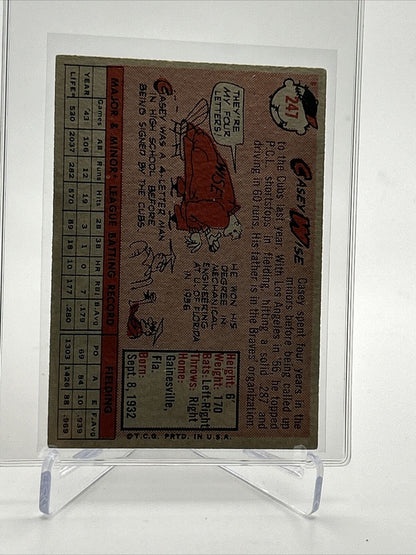 247
CASEY WISE
Casey spent four years in the
minors before being called up
to the Cubs last year. With Los Angeles in '56 he topped
P.C.L. shortstops in fielding, hitting a solid .287 and
driving in 60 runs. His father is in the Braves organization.
THEY'RE
MY FOUR
LETTERS!
WISE
HE WON HIS
DEGREE IN
MECHANICAL
ENGINEERING
AT U. OF FLORIDA
IN 1956
CASEY WAS A 4-LETTER MAN
IN HIGH SCHOOL BEFORE
BEING SIGNED BY THE CUBS
Height: 6'
Weight: 170
Bats: Left-Right
Throws: Right
Home:
Gainesville,
Fla.
Born:
Sept. 8, 1932
MAJOR & MINOR LEAGUE BATTING RECORD FIELDING
Games AB Runs Hits 2B 3B HR RBI B.Avg PO A E F.Avg
YEAR 43 106 12 19 3 1 0 7 .179 69 84 10 .939
LIFE 520 2037 282 570 89 18 10 177 .280 1303 1426 88 .969
© T.C.G. PRTD. IN U.S.A.